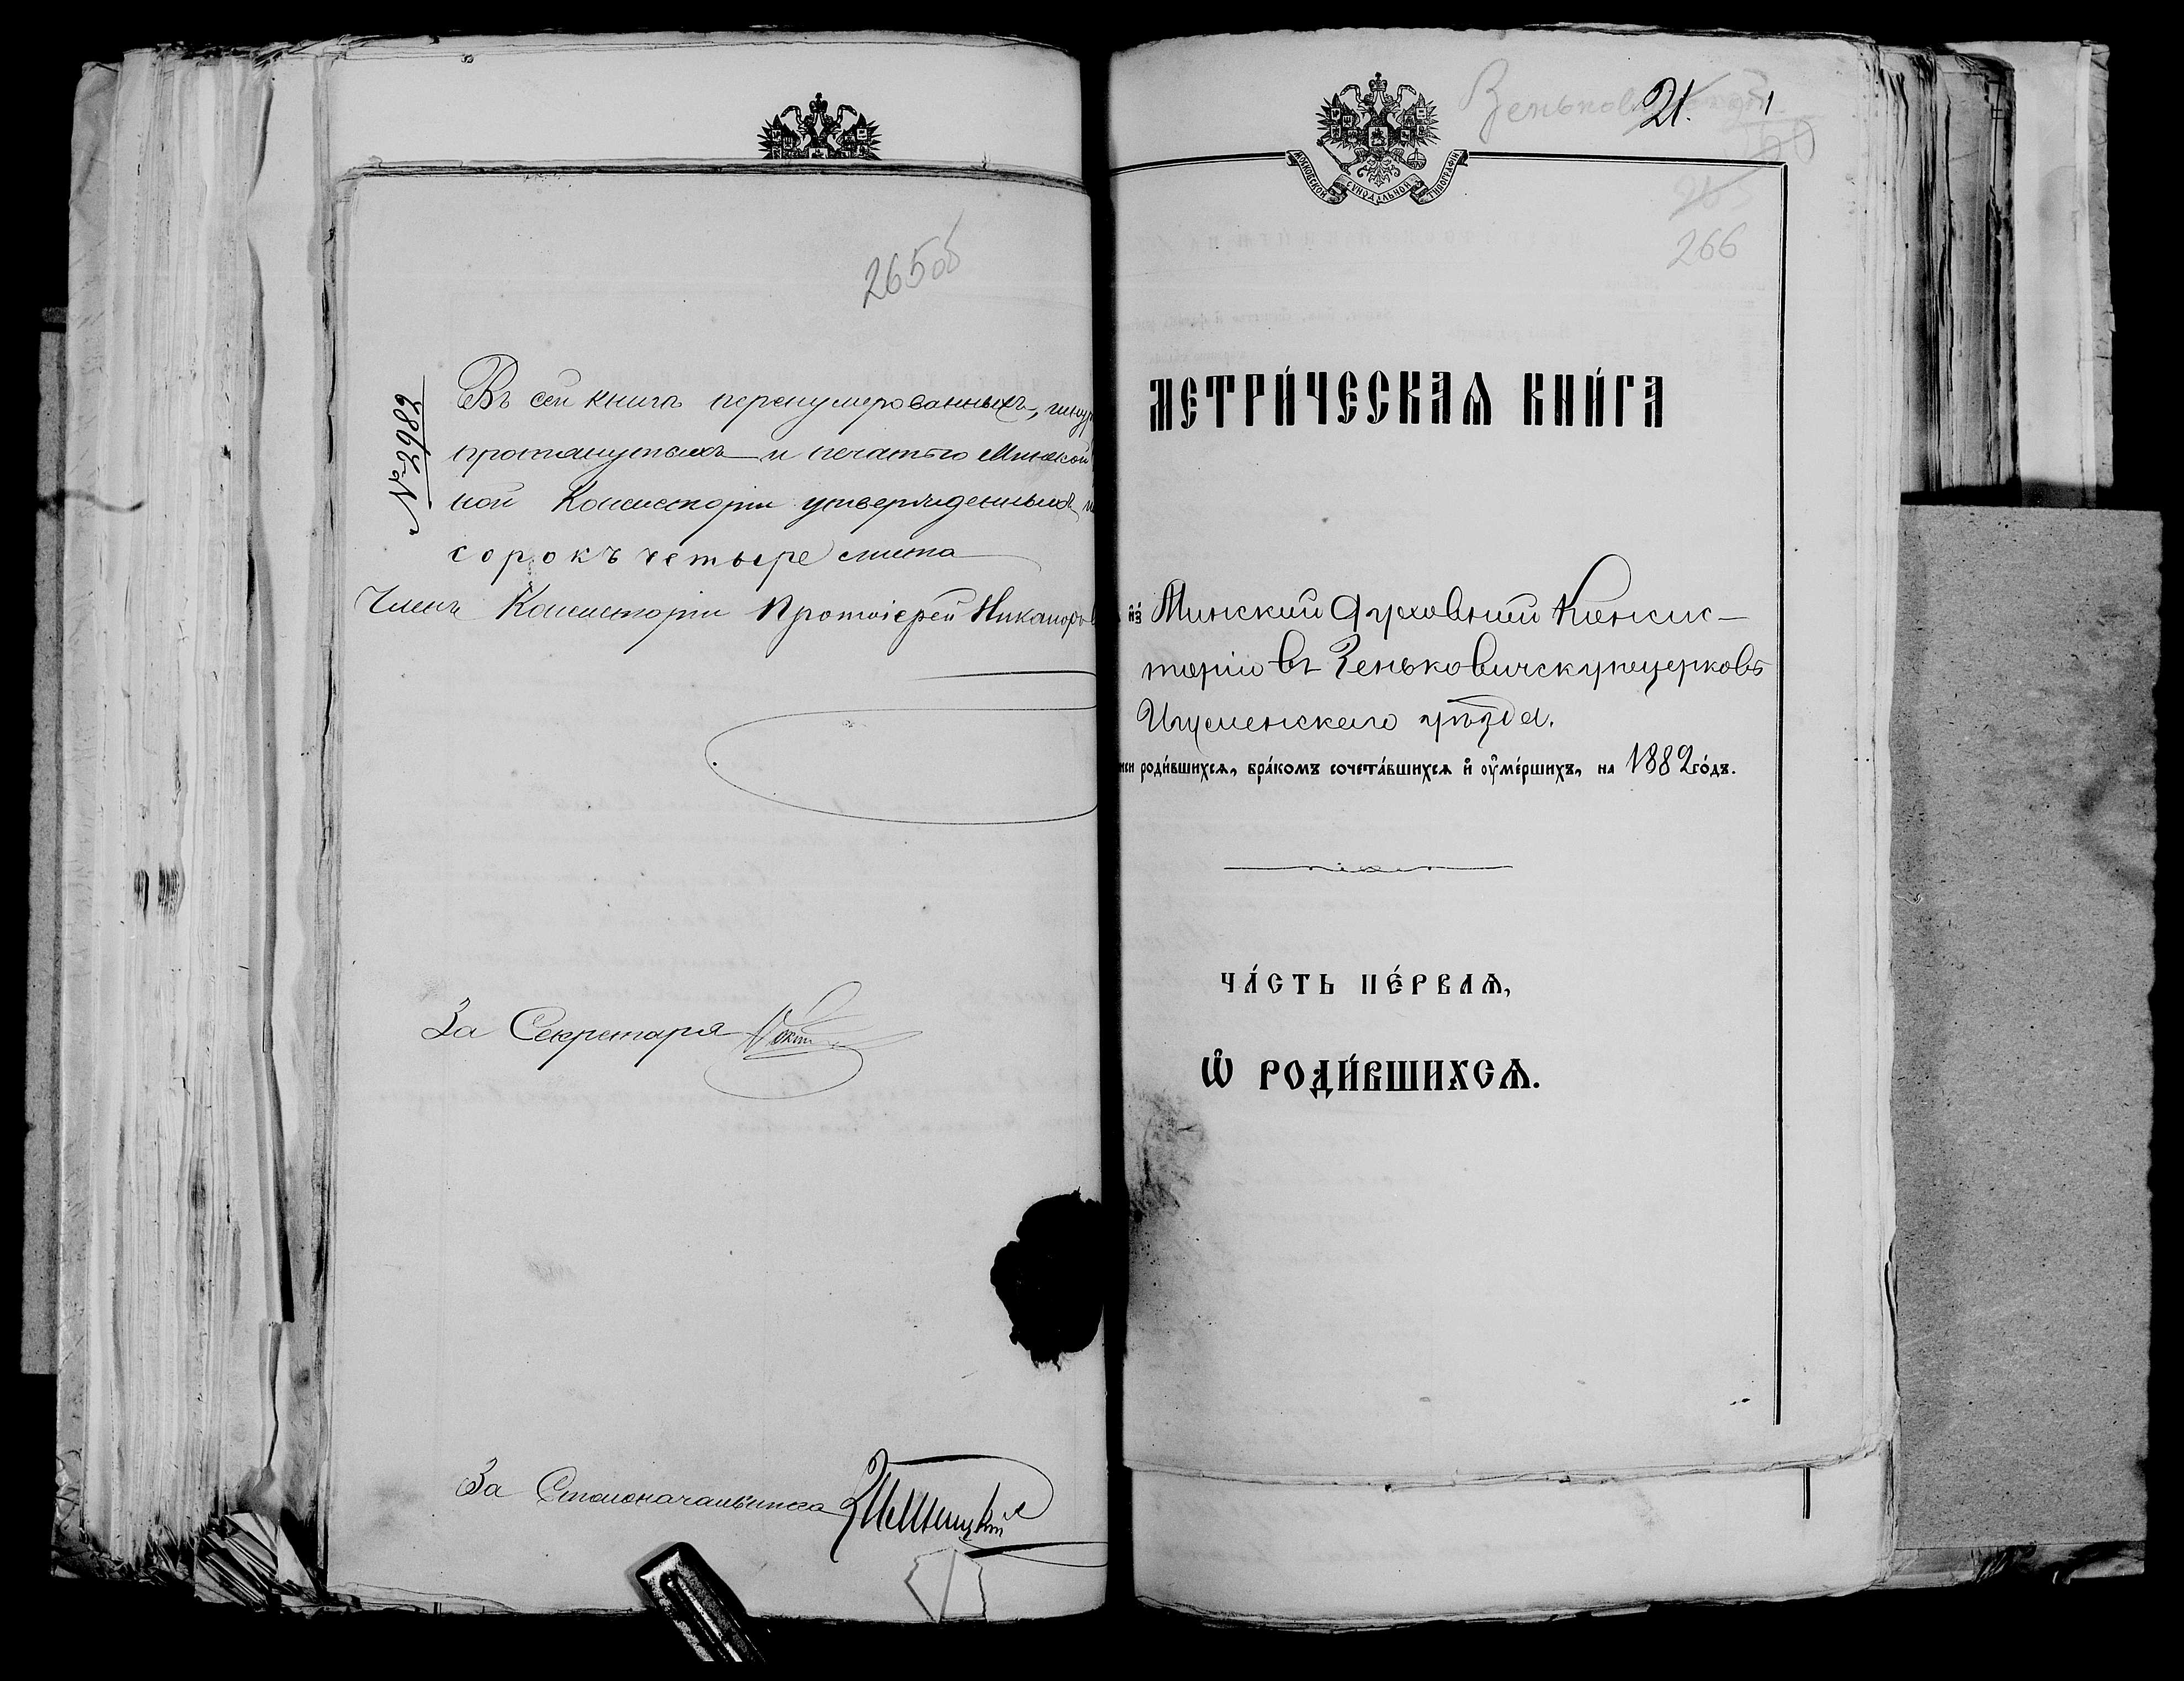 265об
№ 2982
Въ сей книгѣ перенумерованныхъ, шнур
протянутыхъ и печатью Минской
ной Консисторіи утвержденныхъ
сорокъ четыре листа
Членъ Консисторіи Протоіерей Никаноров
За Секретаря
За Столоначальника
21.
1
266
МОСКОВСКОЙ СѴНОДАЛЬНОЙ ТИПОГРАФІИ
МЕТРИ́ЧЕСКАѦ КНИ́ГА
и҆з̾ Минской Духовной Консис-
торіи въ Зеньковичскую церковь
Игуменскаго уѣзда.
роди́вшихсѧ, бра́комъ сочета́вшихсѧ и҆ ᲂу҆ме́ршихъ, на 1882 го́дъ.
ЧА́СТЬ ПЕ́РВАѦ,
Ѡ҆ РОДИ́ВШИХСѦ.